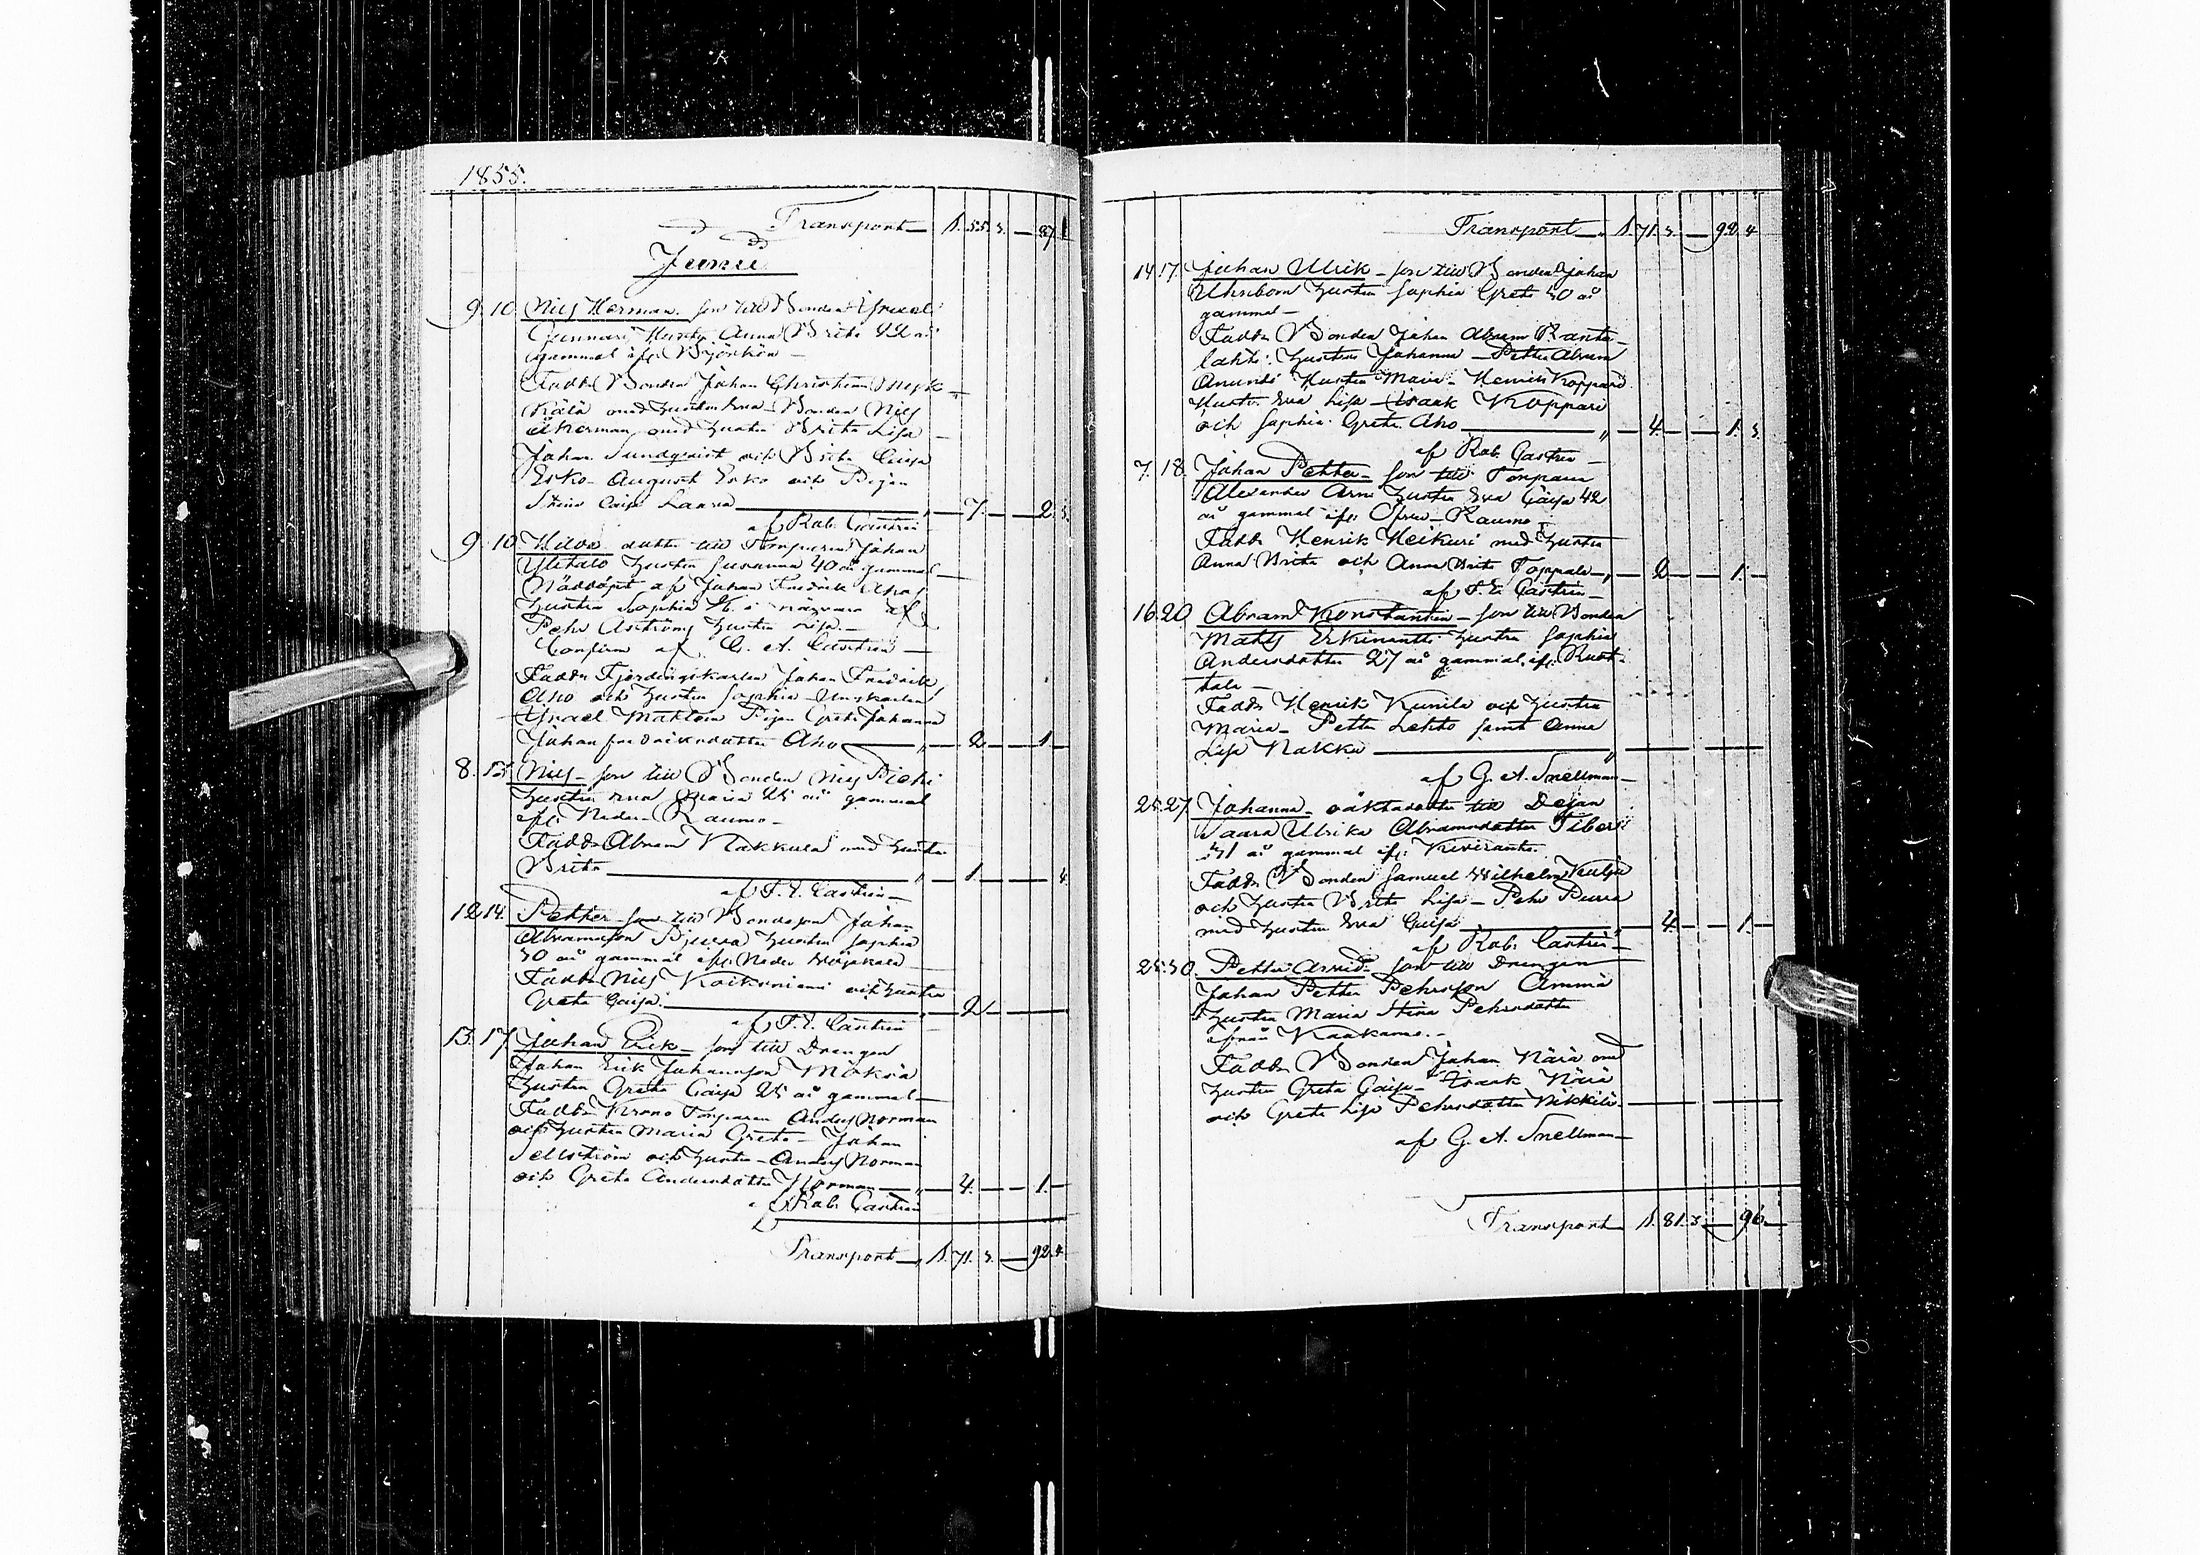 1855.
Transport — 1. 55. 3. — 87 1
Junii
9. 10. Nils Herman son till Bonden Israel
Gunnari Hustru Anna Brita 22 år
gammal ifr. Björkön —
Faddr Bonden Johan Christian
med hustrun Eva — Bonden Nils
Åkerman med hustru Brita Lisa —
Johan Sundqvist och Brita Caisa
Erko — August Erko och Pigan
Stina Caisa Laana — 7. — 2. 3.
af Rab. Castrén
9. 10. Hilda dotter till Torparen Johan
Ylitalo hustru Susanna 40 år gammal —
Nöddöpt af Johan Fredrik Aho
hustru Sophia K. i närvaro af
Pehr Åströms hustru Lisa. —
Confirm. af G. A. Castrén —
Faddr Fjerdingskarlen Johan Fredrik
Aho och hustru Sophia — Ungkarlen
Israel Mattson Pigan Greta Johanna
Johan fredriksdotter Aho — 2. — 1 —
8. Nils — son till Bonden Nils
hustru Eva Maria 25 år gammal
ifr. Neder Raumo —
Faddr Abram Nakkula med hustru
Brita — 1. — 4
af T. E. Castrén —
12 14. Petter son till Bondeson Johan
Abramsson hustru Sophia
30 år gammal ifr. Neder
Faddr Nils Koikoniemi och hustru
Greta Caisa. — 2 —
af T. E. Castrén
13. 17. Johan Erik — son till Drengen
Johan Erik Johansson
hustru Greta Caisa 25 år gammal —
Faddr Krono Torparen Anders Norman
och hustru Maria Greta — Johan
Sellström och hustru — Anders Norman
och Greta Andersdotter Norman — 4. — 1. —
af Rab. Castrén
Transport — 1. 71. 3. — 92. 4
Transport — 1. 71. 3. — 92. 4
14 17. Johan Ulrik — son till Bonden Johan
hustru Sophia Greta 30 år
gammal —
Faddr Bonden Johan Abram Ranta-
lahti hustru Johanna — Petter Abram
Anundi Hustru Maria — Henrik Koppari
Hustr. Eva Lisa — Isaak Koppari
och Sophia Greta Aho — 4. — 1. 3.
af Rab. Castrén —
7. 18. Johan Petter — son till Torparen
Alexander hustru Eva Caisa 42
år gammal ifr. Öfver — Raumo —
Faddr Henrik Heikuri med hustru
Anna Brita och Anna Brita Toppala — 2 — 1. —
af T. E. Castrén —
16. 20 Abram Konstantin — son till Bonden
Mats Erkinantti hustru Sophia
Andersdotter 27 år gammal, ifr.
Faddr Henrik Kunila och hustru
Maria — Petter Lehto samt Anna
Lisa Nakku —
af G. A. Snellman —
25. 27. Johanna — oäktadotter till Dejan
Saara Ulrika Abramsdotter
31 år gammal ifr. Kiviranta.
Faddr Bonden Samuel Wilhelm
och hustru Brita Lisa — Pehr
med hustru Eva Caisa — 4. — 1. —
af Rab. Castrén —
25. 30. Petter Arvid — son till Drengen
Johan Petter Pehrsson Ämmä
hustru Maria Stina Pehrsdotter
ifrån Kaakamo. —
Faddr Bonden Johan Närä med
hustru Greta Caisa — Isaak Närä
och Greta Lisa Pehrsdotter Nikkilä —
af G. A. Snellman —
Transport 1. 81. 3. — 96 —